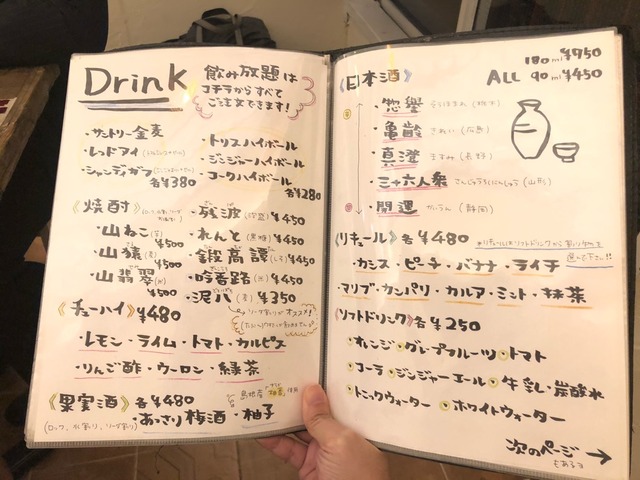 Drink
飲み放題は
コチラからすべて
ご注文できます!
・サントリー金麦
・レッドアイ
・シャンディガフ
各¥380
・トリスハイボール
・ジンジャーハイボール
・コークハイボール
各¥280
《焼酎》
・山ねこ(芋)
¥500
・山猿(麦)
¥500
・山翡翠(米)
¥500
・残波(泡盛) ¥450
・れんと(黒糖) ¥450
・鍛高譚(しそ) ¥450
・吟香露(米) ¥450
・泥八(麦) ¥350
《チューハイ》¥480
・レモン・ライム・トマト・カルピス
・りんご酢・ウーロン・緑茶
《果実酒》各¥480
(ロック、水割り、ソーダ割り)
・あっさり梅酒・柚子
《日本酒》
180ml ¥950
ALL 90ml ¥450
・惣誉 (栃木)
・亀齢 きれい(広島)
・真澄 ますみ(長野)
・三十六人衆 さんじゅうろくにんしゅう(山形)
・開運 かいうん(静岡)
《リキュール》各¥480
・カシス・ピーチ・バナナ・ライチ
・マリブ・カンパリ・カルア・ミント・抹茶
《ソフトドリンク》各¥250
・オレンジ・グレープフルーツ・トマト
・コーラ・ジンジャーエール・牛乳・炭酸水
・トニックウォーター・ホワイトウォーター
次のページ
もあるヨ